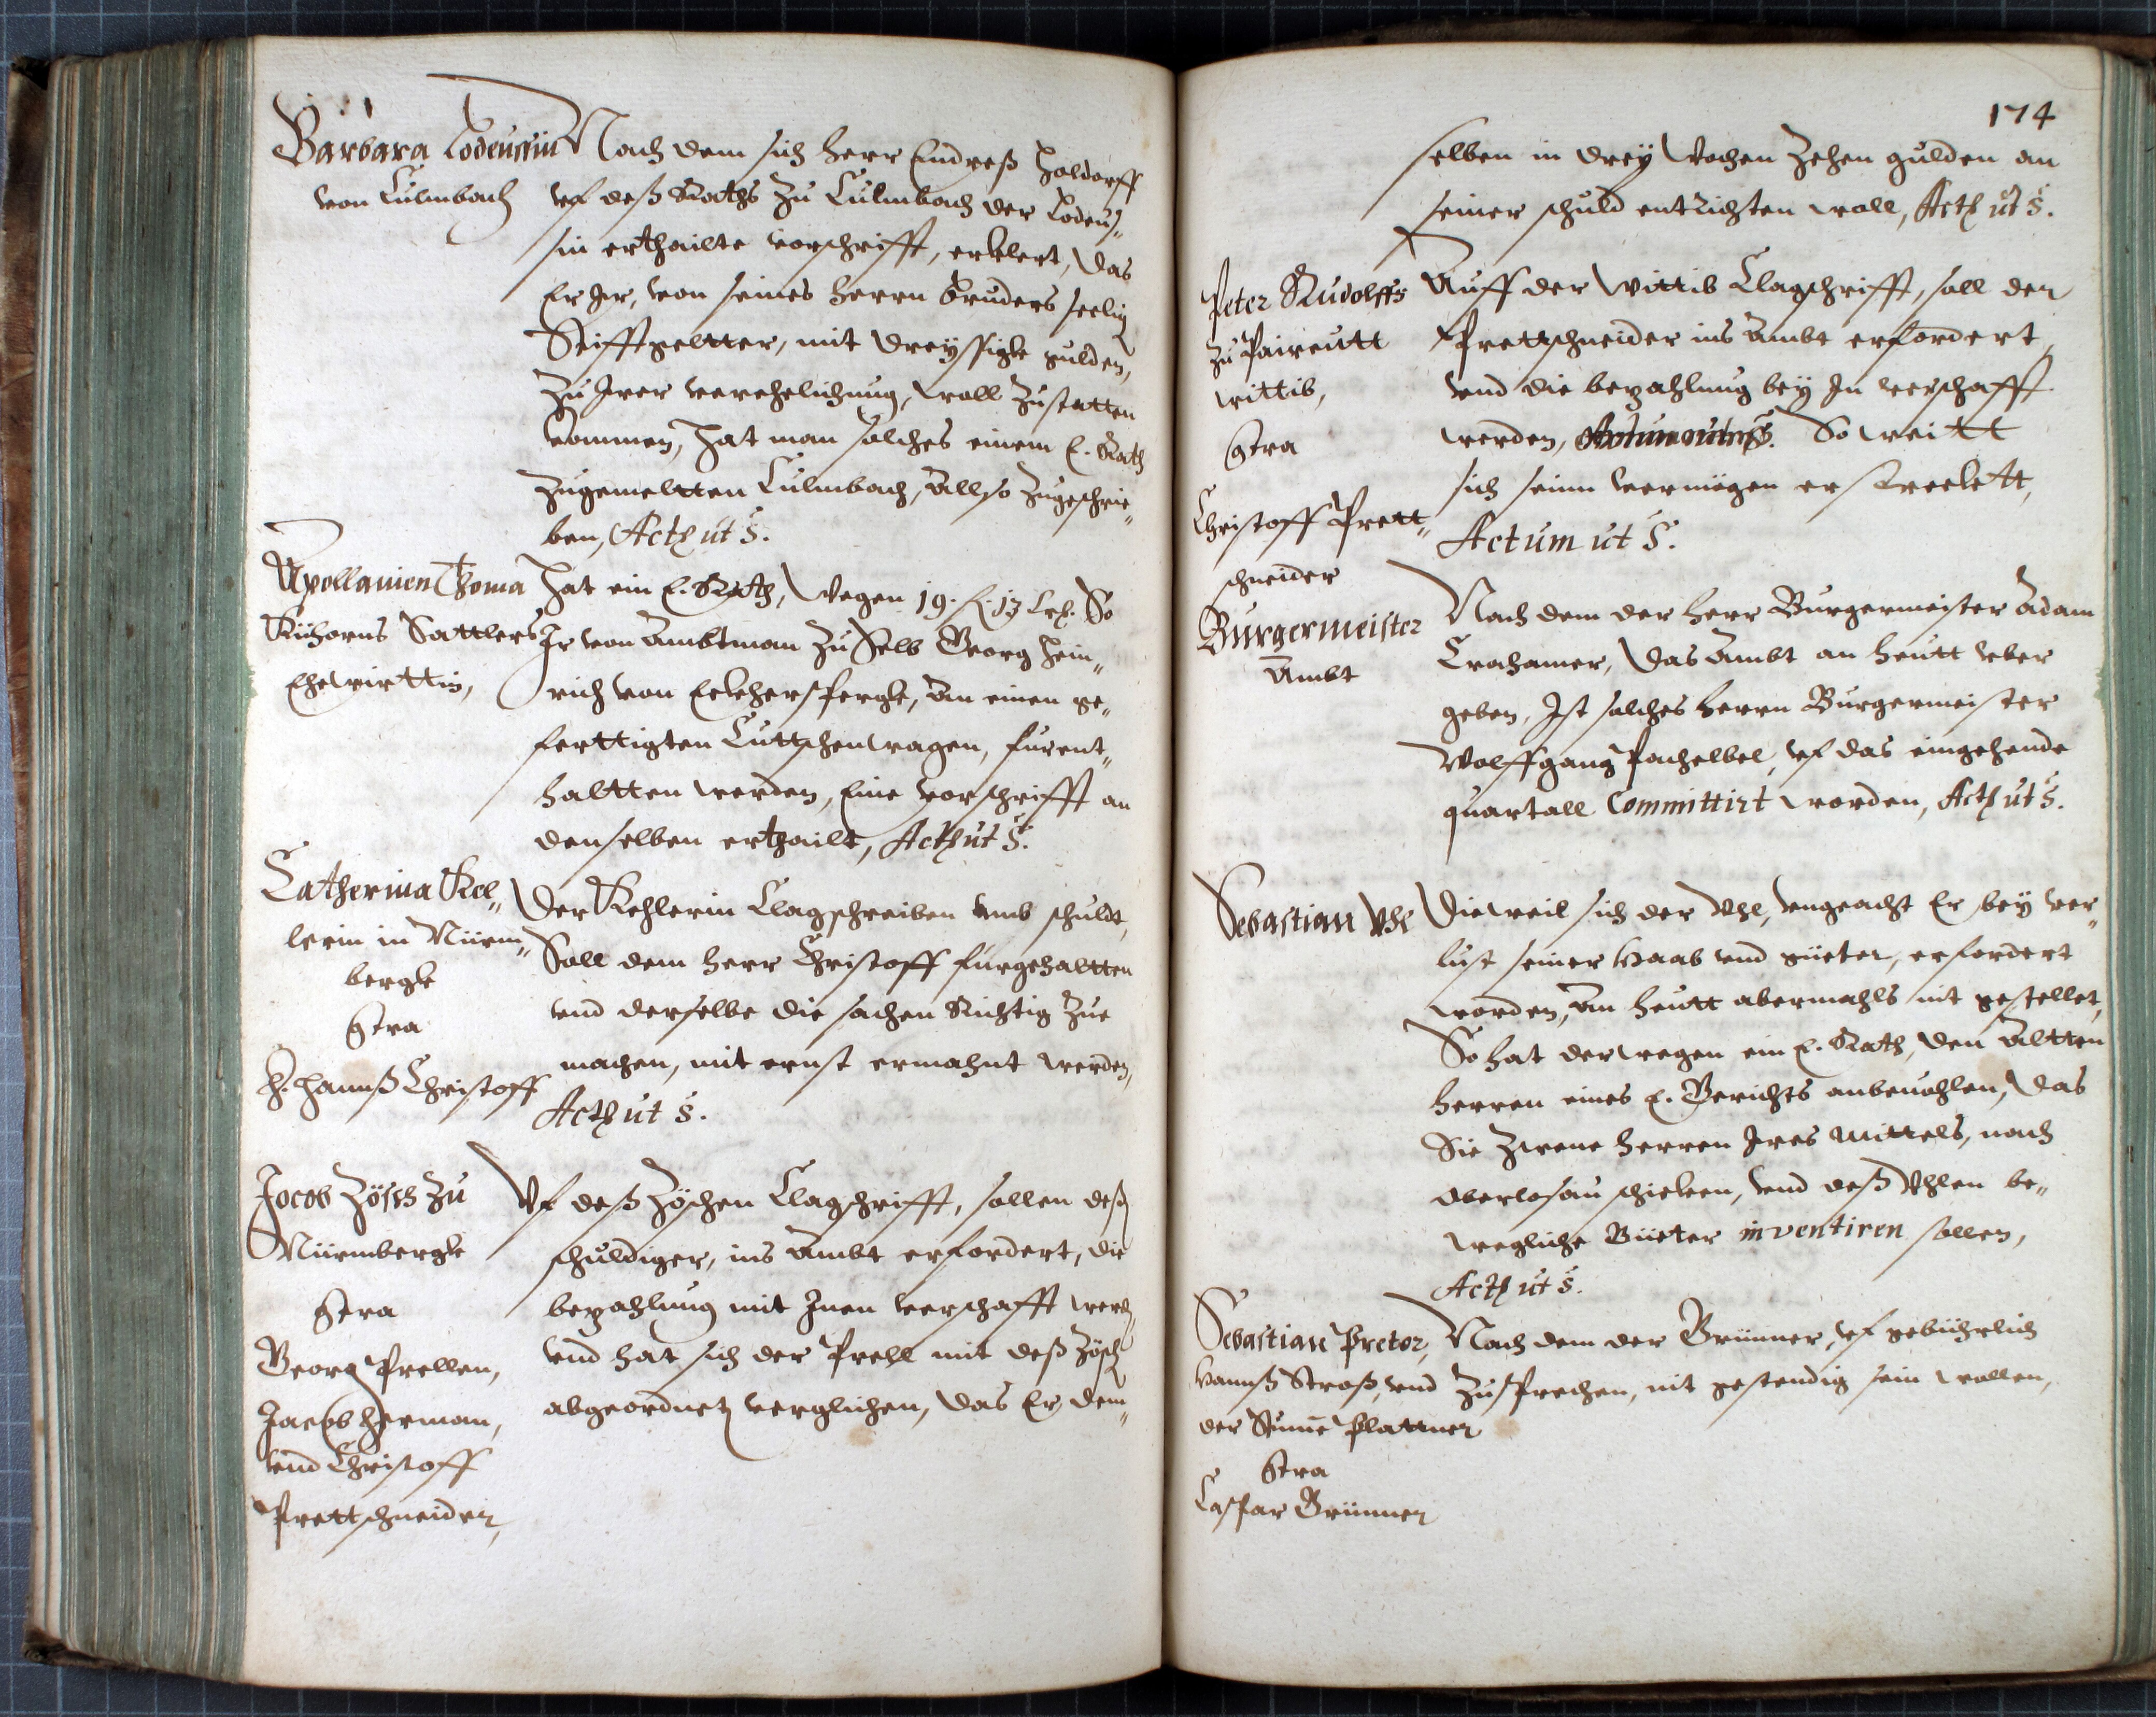 Barbara Lodeussin
von Culmbach
Nach dem sich herr Endreß Haldorff
vf deß Raths zu Culmbach der Lodeus„
sin erthailte vorschrifft, erklert, das
Er Ir, von seines herrn bruders seelig
Stifftgeltter, mit dreyssigk gulden,
zu Irer verehelichung, woll zustatten
kommen, hat man solches einem E. Rath
zugemeltten Culmbach, allso zugeschrie„
ben, Actum ut S.
Apollanien Thoma
Kühorns Sattlers
Ehewirttin,
Hat ein E. Rath, wegen 19. fl. 13 kr. So
Ir von Ambtman zu Selb Georg Hein„
rich von Eckherspergk, an einen ge„
ferttigten Cuttschenwagen, furent„
haltten werden, Eine vorschrifft an
denselben erthailt, Actum ut S.
Catherina Kel„
lerin in Nürm„
bergk
Contra
H. Hannß Christoff
Der Kehlerin Clagschreiben vmb schuldt,
Soll dem herr Christoff fürgehaltten
vnd derselbe die sachen Richtig zue
machen, mit ernst ermahnt werden,
Actum ut S.
Jocob Zöschs zu
Nürmbergk
Contra
Georg Prellen,
Jacob Herman,
vnd Christoff
Prettschneider,
Vf deß Zöschen Clagschrifft, sollen deß
schuldiger, ins Ambt erfordert, die
bezahlung mit Inen verschafft werden
vnd hat sich der Prehl mit deß Zösch
abgeordneten verglichen, das Er dem„
174
selben in drey wochen zehen gulden an
seiner schuld entrichten woll, Actum ut S.
Peter Rudolffs
zu Paireutt
wittib,
Contra
Christoff Prett„
schneider
Auff der wittib Clagschrifft, soll der
Prettschneider ins Ambt erfordert,
vnd die bezahlung bey Im verschafft
werden, Actum ut S. So weitt
sich seinn vermögen erstreckett,
Actum ut S.
Burgermeister
Ambt
Nach dem der herr Burgermeister Adam
Crahamer, das Ambt an heutt vber
geben, Ist solches herrn Burgermeister
Wolffgang Pachelbel, vf das eingehende
quartall Committirt worden, Actum ut S.
Sebastian Vhl
Dieweil sich der Vhl, vngeacht Er bey ver„
lust seiner Haab vnd güeter, erfordert
worden, an heutt abermahls nit gestellet,
So hat derwegen ein E. Rath, den Altten
herren eines E. Gerichts anbeuohlen, das
Sie zwene herren Ires mittels, nach
Oberlosau schicken, vnd deß Vhlen be„
wegliche Güeter inventiren sollen,
Actum ut S.
Sebastian Pretor,
Hannß Stroß, vnd
der Plattner
Contra
Caspar Grünner
Nach dem der Grünner, vf gebührlich
zusprechen, nit gestendig sein wollen,